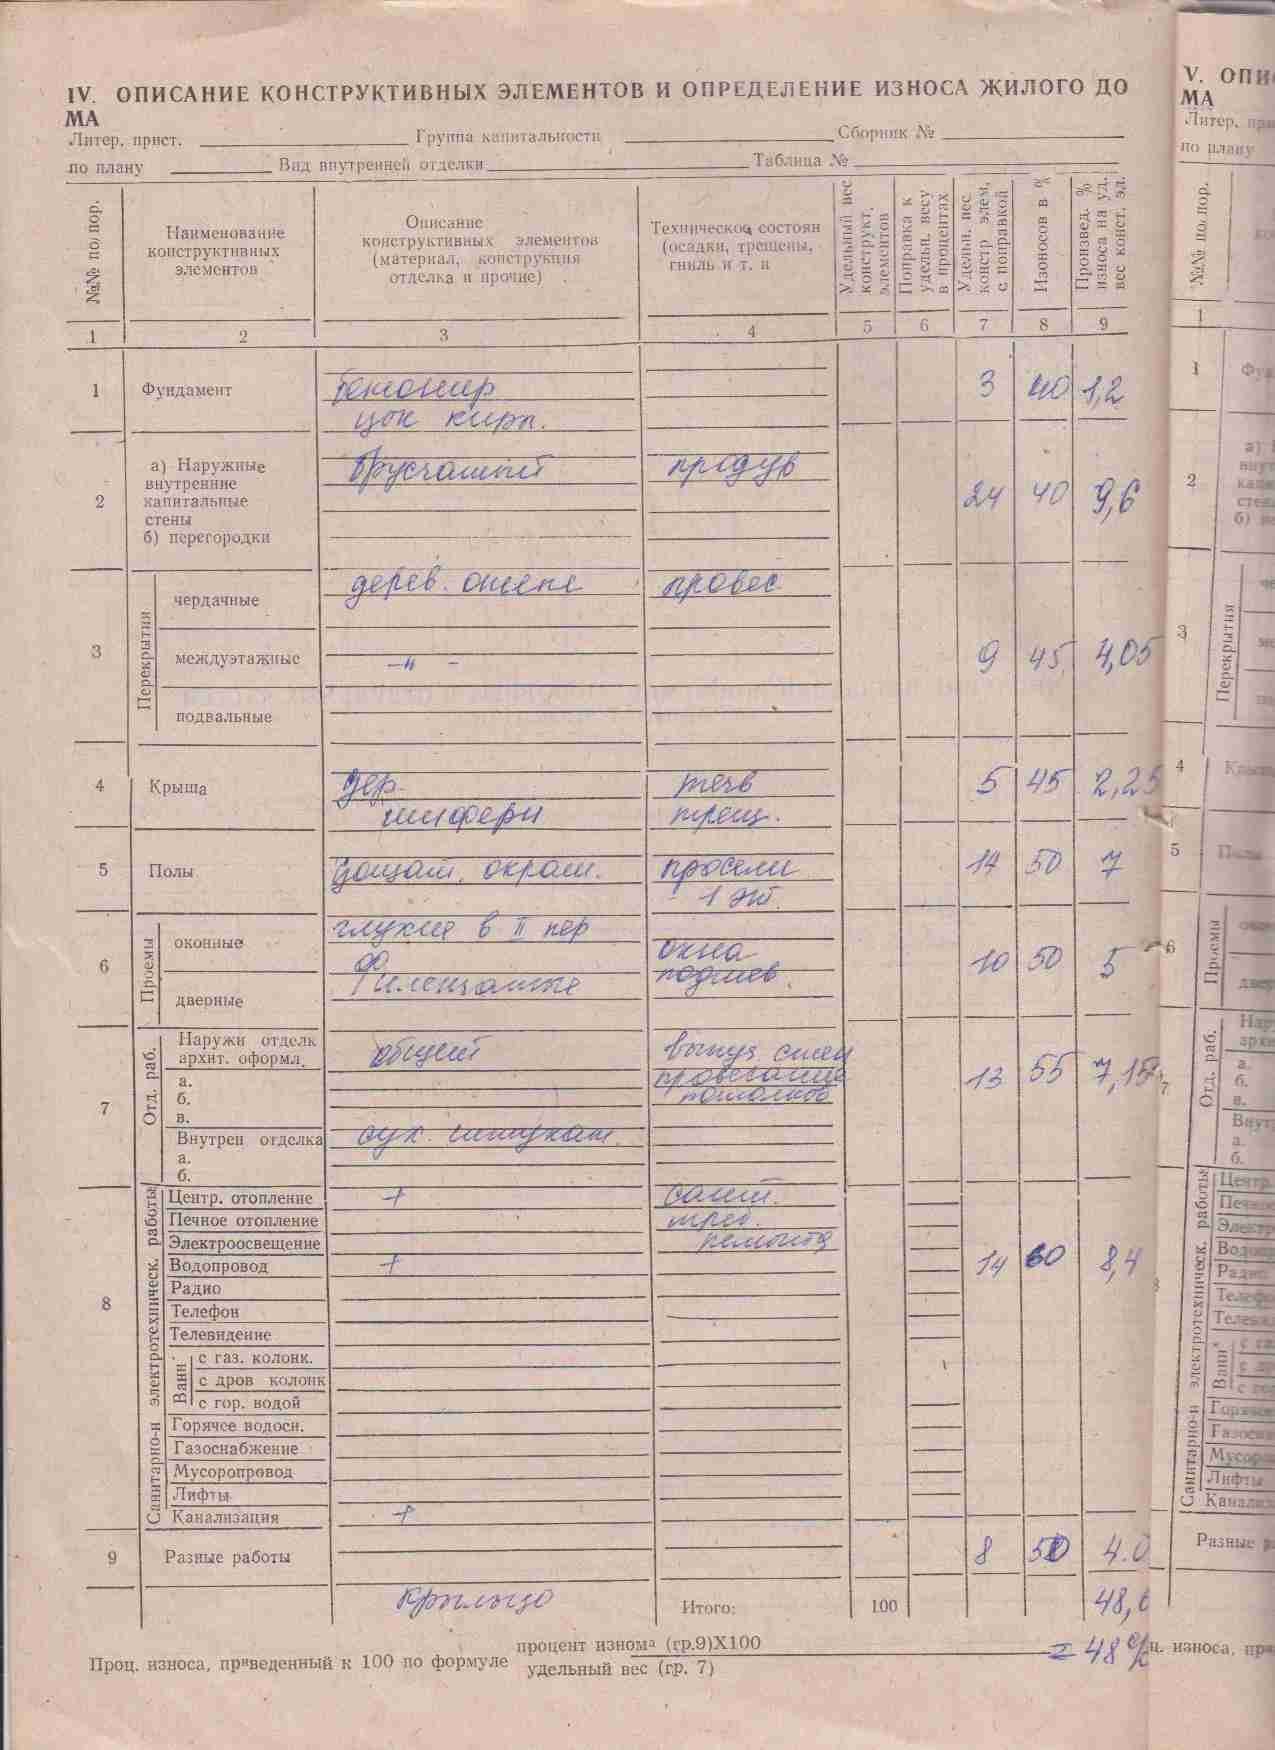 IV. ОПИСАНИЕ КОНСТРУКТИВНЫХ ЭЛЕМЕНТОВ И ОПРЕДЕЛЕНИЕ ИЗНОСА ЖИЛОГО ДО
МА
Литер, прист. Группа капитальности Сборник №
по плану Вид внутренней отделки Таблица №
№№ по пор.
Наименование
конструктивных
элементов
Описание
конструктивных элементов
(материал, конструкция
отделка и прочие)
Техническое состоян
(осадки, трещены,
гниль и т. п
Удельный вес
конструкт,
элементов
Поправка к
удельн. весу
в процентах
Удельн. вес
констр элем,
с поправкой
Изоносов в %
Произвед. %
износа на уд.
вес конст. эл.
1 2 3 4 5 6 7 8 9
1 Фундамент
цок кирп.
3 40 1,2
2
а) Наружные
внутренние
капитальные
стены
б) перегородки
брусчатый продув
24 40 9,6
3 Перекрытия
чердачные дерев. отепл провес
междуэтажные –"–
подвальные
9 45 4,05
4 Крыша дер. течь
шиферн трещ.
5 45 2,25
5 Полы дощат. окраш. просели
1 эт.
14 50 7
6 Проемы
оконные глухие в II пер окна
дверные Филенчатые
10 50 5
7 Отд. раб.
Наружн отделк
архит. оформл.
общий выпуч. стен
провесание
потолков
а.
б.
в.
13 55 7,15
Внутрен отделка сух. штукат.
а.
б.
8 Санитарно-и электротехническ. работы
Центр. отопление + сант.
Печное отопление треб.
Электроосвещение ремонта
Водопровод +
14 60 8,4
Радио
Телефон
Телевидение
Ванн
с газ. колонк.
с дров колонк
с гор. водой
Горячее водосн.
Газоснабжение
Мусоропровод
Лифты
Канализация +
9 Разные работы 8 50 4.0
крыльцо Итого: 100 48,6
Проц. износа, приведенный к 100 по формуле
процент износа (гр.9)Х100
удельный вес (гр. 7)
= 48 %
V. ОПИ
МА
Литер, при
по плану
№№ по пор.
1
1
2
3 Перекрытия
4
5
6 Проемы
7 Отд. раб.
а.
б.
в.
а.
б.
Санитарно-и электротехническ. работы
Ванн
Разные
ц. износа, при